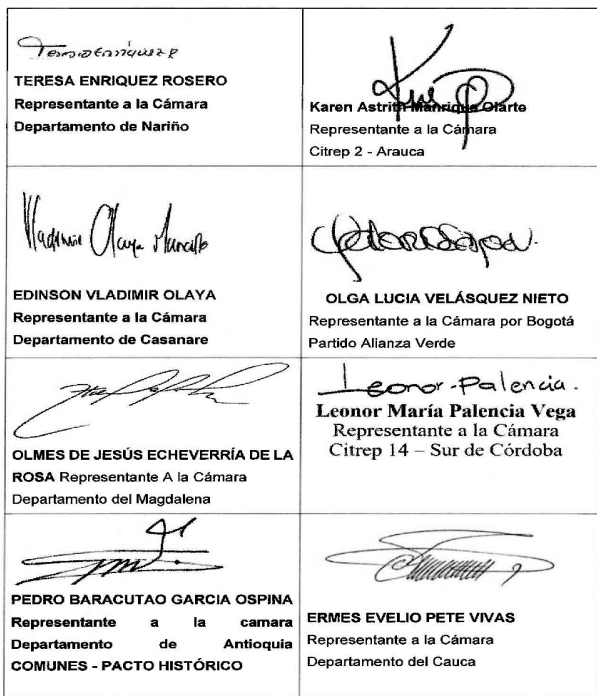 Teresa Enríquez R
TERESA ENRIQUEZ ROSERO
Representante a la Cámara
Departamento de Nariño
Karen Astrith Manrique Olarte
Representante a la Cámara
Citrep 2 - Arauca
Vladimir Olaya Mancipe
EDINSON VLADIMIR OLAYA
Representante a la Cámara
Departamento de Casanare
OLGA LUCIA VELÁSQUEZ NIETO
Representante a la Cámara por Bogotá
Partido Alianza Verde
OLMES DE JESÚS ECHEVERRÍA DE LA
ROSA Representante A la Cámara
Departamento del Magdalena
Leonor-Palencia.
Leonor María Palencia Vega
Representante a la Cámara
Citrep 14 – Sur de Córdoba
PEDRO BARACUTAO GARCIA OSPINA
Representante a la camara
Departamento de Antioquia
COMUNES - PACTO HISTÓRICO
ERMES EVELIO PETE VIVAS
Representante a la Cámara
Departamento del Cauca